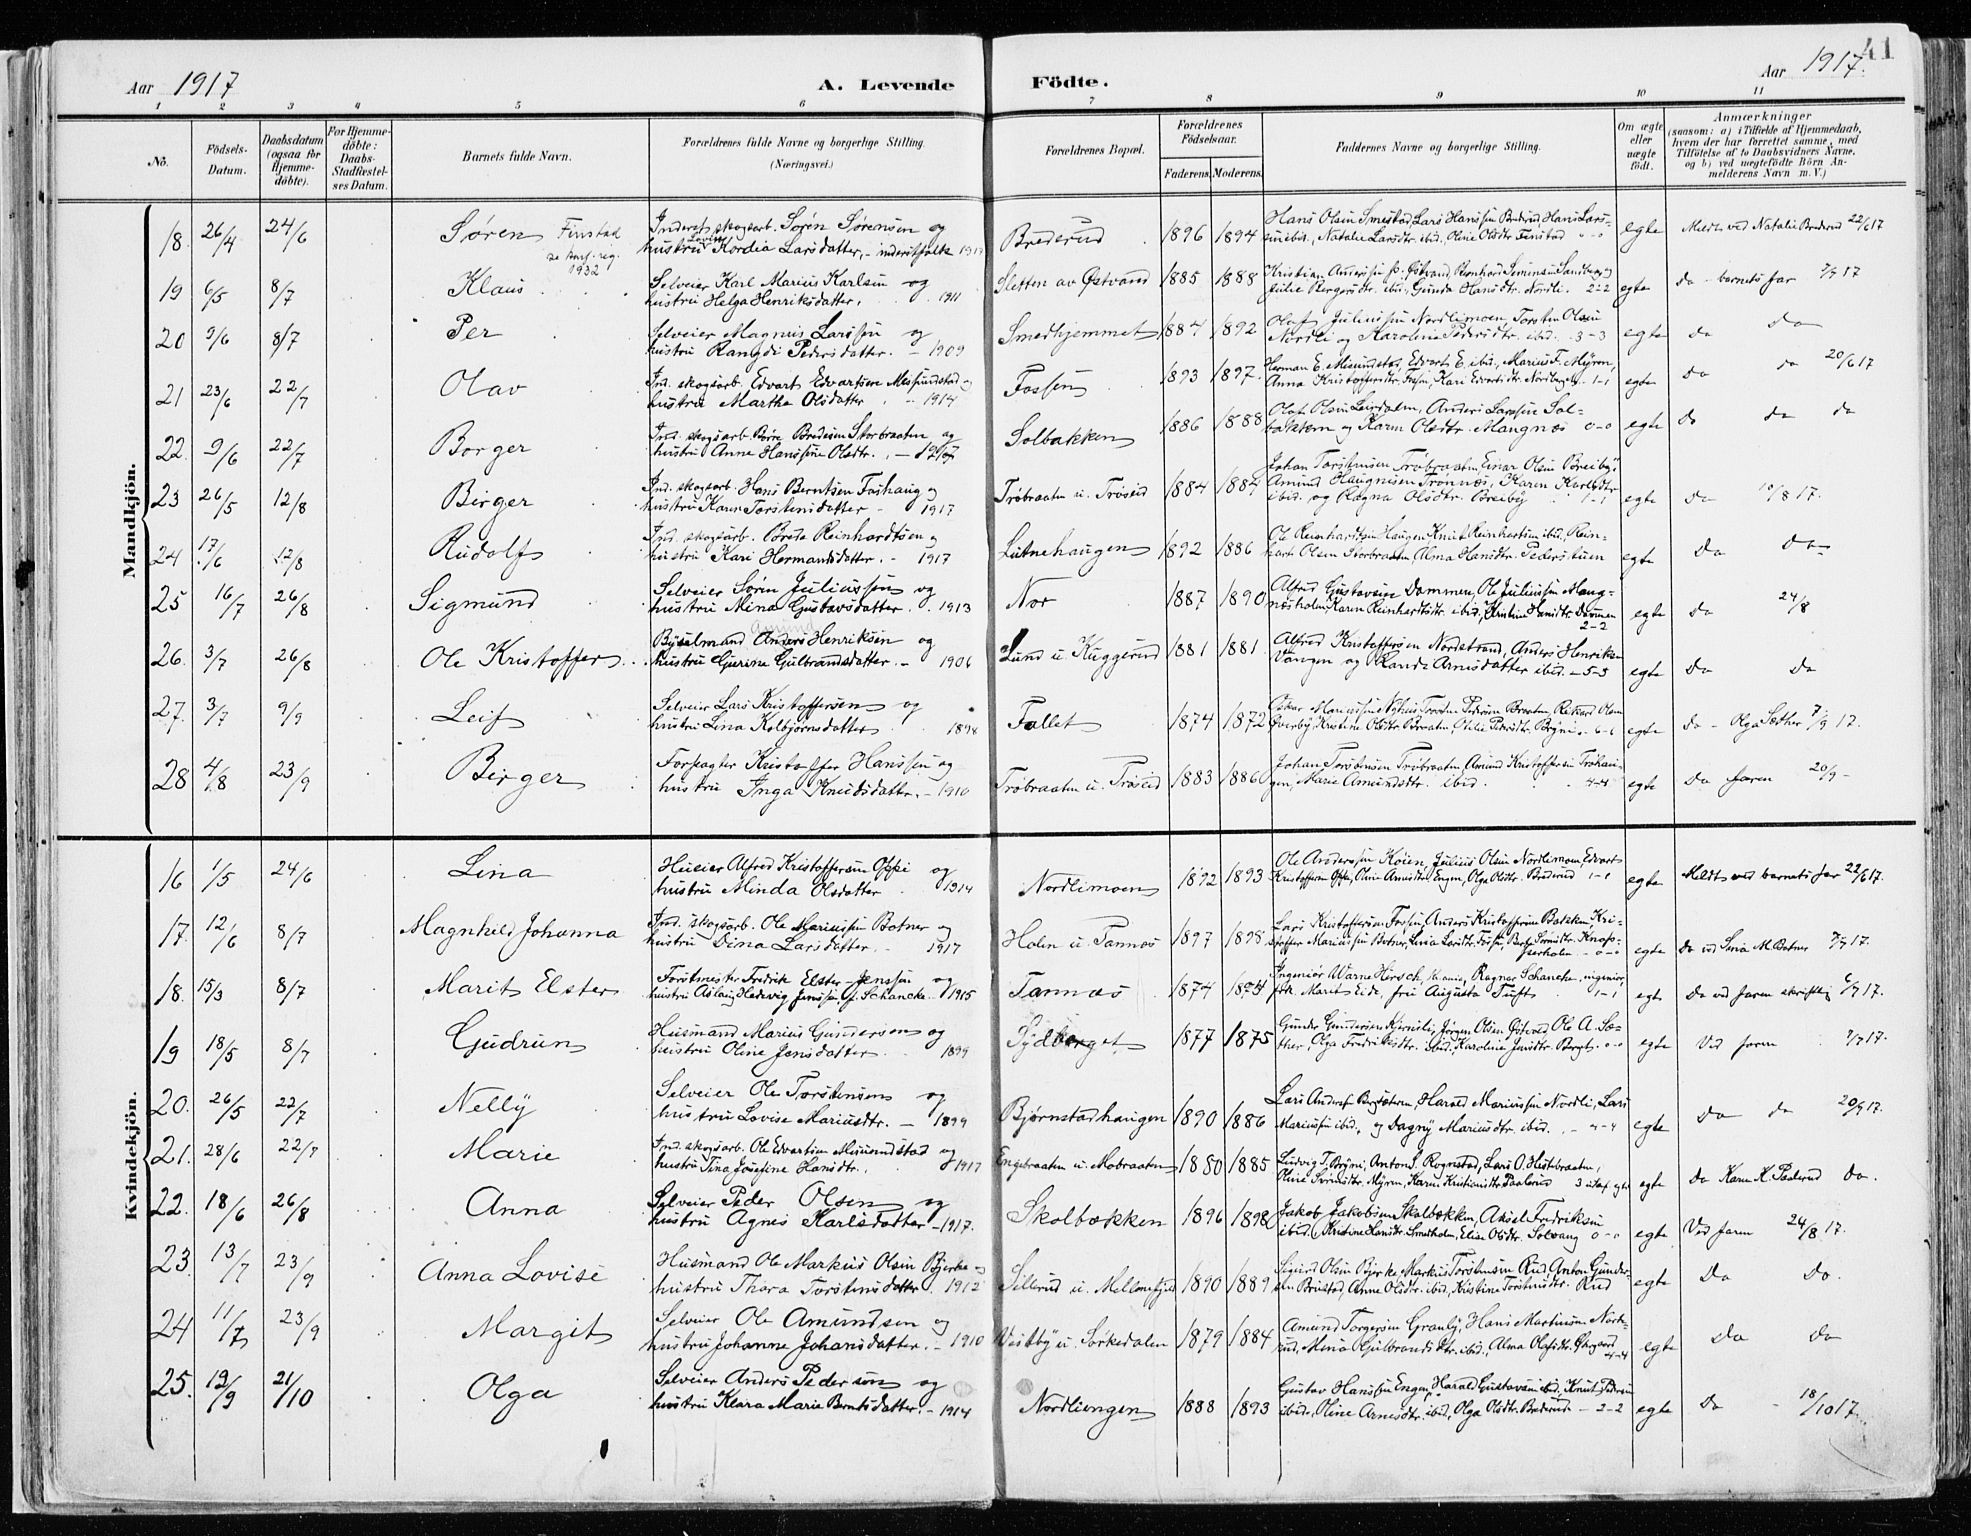 41
Aar 1917
A. Levende
Födte.
Aar 1917.
1 2 3 4 5 6 7 8 9 10 11
No.
Födsels-Datum.
Daabsdatum (ogsaa for Hjemme-döbte).
For Hjemme-döbte: Daabs-Stadfæstel-ses Datum.
Barnets fulde Navn.
Forældrenes fulde Navne og borgerlige Stilling. (Næringsvei.)
Forældrenes Bopæl.
Forældrenes Födselsaar.
Faderens. Moderens.
Faddernes Navne og borgerlige Stilling.
Om ægte eller uægte födt.
Anmærkninger
(saasom: a) i Tilfælde af Hjemmedaab, hvem der har forrettet samme, med Tilföielse af to Daabsvidners Navne, og b) ved uegtefödte Börn An-melderens Navn m. V.)
Mandkjön.
18 26/4 24/6 Søren Finstad
se Amf. reg. 1932
Inderst skogsarb. Søren Sørensen og
hustru Lovise Kordia Larsdatter, - inderstfolk 1917
Brederud 1896 1894
Hans Olsen Smestad, Lars Hanssen Brederud Hans Lars-
sen ibid., Natalie Larsdtr. ibid. Oline Olsdtr. Finstad 0-0
egte Meldt ved Natalie Brederud 22/6 17
19 6/5 8/7 Klaus
Selveier Karl Marius Karlsen og
hustru Helga Henriksdatter. 1911
Sletten av Østvand 1885 1888
Kristian Anderssen Østvand, Bernhard Simensen Sandberg
Julie Bergersdtr. ibid. Gunda Hansdtr. Nordli. 2-2
egte Do - barnets far 7/7 17
20 9/6 8/7 Per
Selveier Magnus Larssen og
hustru Rangdi Pedersdatter. - 1909
Smedhjemmet 1887 1892
Olaf Juliussen Nordlimoen, Torsten Olsen
Nordli og Karoline Pedersdtr. ibid. - 3-3
egte Do Do
21 23/6 22/7 Olav
Ind. skogsarb. Edvart Edvartsen Mesundstad og
hustru Marthe Olsdatter. - 1914
Fossen 1893 1897
Herman E. Mesundstad, Edvart E. ibid., Marius F. Myren,
Anna Kristoffersdtr. Fossen, Kari Edvartsdtr. Nordberg 1-1
egte Do Do 20/6 17
22. 9/6 22/7 Borger
Ind. skogsarb. Børe Bredesen Storbraaten og
hustru Anne Hanssine Olsdtr. - 1907
Solbakken 1886 1888
Olaf Olsen Leirdalen, Anders Larssen Sol-
bakken og Karen Olsdtr. Mangnæs 0-0
egte Do Do do
23 26/5 12/8 Birger
Ind. skogsarb. Hans Berntsen Foshaug og
hustru Karen Torstensdatter - 1917
Trøbraaten u. Trøseid 1884 1887
Johan Torstensen Trøbraaten, Einar Olsen Breiby,
Amund Haugnesen Trønnæs, Karen Karlsdtr
ibid. og Ragna Olsdtr. Breiby 1-1
egte Do 10/8 17.
24 17/6 12/8 Rudolf
Ind. skogsarb. Brede Reinhardtsen og
hustru Kari Hermansdatter. - 1917
Lutnehaugen 1892 1886
Ole Reinhardtsen Haugen Knut Reinhartsen ibid, Rein-
hart Olsen Storbraaten, Alma Hansdtr. Pederstuen
egte Do Do
25 16/7 26/8 Sigmund
Selveier Søren Juliussen og
hustru Mina Gustavsdatter. 1913
Nor 1887 1890
Alfred Gustavsen Dammen, Ole Juliussen Mang-
næsholen, Karen Reinhardtsdtr. ibid., Kristine Hansdtr. Dammen
2-2
egte Do 24/8
26. 3/7 26/8 Ole Kristoffer
Amund
Bygselmand Anders Henriksen og
hustru Gurine Gulbrandsdatter. - 1906
Lund u. Kuggerud 1881 1881.
Alfred Kristoffersen Nordstrand, Anders Henriksen
Vangen og Randa Arnesdatter ibid. - 5-5
egte Do Do
27. 3/7 9/9 Leif
Selveier Lars Kristoffersen og
hustru Lina Kolbjørnsdatter 1898
Fallet 1874 1872
Oskar Mariussen Nyhus Torsten Pedersen Braaten, Rikard Olsen
Øverby, Kristine Olsdtr. Braaten, Otilie Pedersdtr. Bryni 6-6
egte do - Olga Sæther 7/9 17.
28 4/8 23/9 Birger
Forpagter Kristoffer Hanssen og
hustru Inga Knudsdatter. - 1910
Trøbraaten u. Trøseid 1883 1886
Johan Torstensen Trøbraaten Amund Kristoffersen Trøhau-
gen, Marie Amundsdtr. ibid. 4-4
egte Do faren 20/9 -
Kvindekjön.
16 1/5 24/6 Lina
Huseier Alfred Kristoffersen Oppi og
hustru Minda Olsdatter 1914
Nordlimoen 1892 1893
Ole Anderssen Køien, Julius Olsen Nordlimoen, Edvart
Kristoffersen Oppi, Oline Arnesdtr. Engen, Olga Olsdtr. Brederud 1-1
egte Meldt ved barnets far 22/6 17.
17. 12/6 8/7 Magnhild Johanna
Ind. skogsarb. Ole Mariussen Botner og
hustru Dina Larsdatter. - 1917
Holen u. Tannæs 1897 1898
Lars Kristoffersen Fossen, Anders Kristoffersen Bakken Kri-
stoffer Mariussen Botner, Lina Larsdtr. Fossen,
egte Do ved Sina M. Botner 7/7 17.
18. 15/3 8/7 Marit Elster
Forstmester Fredrik Elster Jenssen og
hustru Aslaug Hedevig Jenssen f. Schancke. 1915
Tannæs 1874 1874
Ingeniør Warne Hirsch, Ragnar Schancke, ingeniør,
frk. Marit Eide, fru Augusta Tuft 1-1
egt. Do ved faren skriftlig 6/7 17.
19 18/5 8/7 Gudrun
Husmand Marius Gundersen og
hustru Oline Jensdatter. 1899
Sydberget 1877 1875
Gunder Gundersen Kjernsli, Jørgen Olsen Østvand, Ole A. Sæ-
ther, Olga Fredriksdtr. ibid. Karoline Jensdtr. Berget. 0-0
egte Ved faren 7/7 17.
20. 26/5 22/7 Nelly
Selveier Ole Torstensen og
hustru Lovise Mariusdtr. - 1899
Bjørnstadhaugen 1890 1886
Lars Anderss. Bergsæteren, Harald Mariussen Nordli, Lars
Mariussen ibid., og Dagny Mariusdtr. ibid. - 4-4
egte Do do 20/7 17.
21. 28/6 22/7 Marie
Ind. skogsarb. Ole Edvartsen Mesundstad og
hustru Tina Josefine Hansdtr. 1917
Engebraaten u. Mobraaten 1880 1885
Ludvig T. Bryni, Anton S. Rognstad, Lars O. Hestebraaten,
Oline Svensdtr. Myren, Karen Kristiansdtr. Paalerud
egte Do Karen K. Paalerud Do.
22. 18/6 26/8 Anna
Selveier Peder Olsen og
hustru Agnes Karlsdatter - 1917.
Skolbækken 1896 1898
Jakob Jakobsen Skolbækken, Aksel Fredriksen
ibid. Kristine Larsdtr. Smedholen, Elise Olsdtr. Solvang 0-0
egte Ved faren 24/8 17.
23. 13/7 23/9 Anna Lovise
Husmand Ole Markus Olsen Bjerke og
hustru Thora Torstensdatter. 1912
Sillerud u. Mellemfjeld 1890 1889
Sigurd Olsen Bjerke Markus Torstensen Rud Anton Gunder-
sen Brustad, Anne Olsdtr. ibid, Kristine Torstensdtr. Rud
egte Do Do.
24 11/7 23/9 Margit
Selveier Ole Amundsen og
hustru Johanne Johansdatter. - 1910
Vestby u. Sorkedalen 1879 1884
Amund Torgersen Granly, Hans Martinsen Nord-
rud, Mina Gulbrandsdtr. ibid., Alma Olafsdtr. Østgaard
4-4
egte Do Do
25. 19/9 21/10 Olga
Selveier Anders Pederssen og
hustru Klara Marie Berntsdatter. - 1914
Nordliengen 1888 1893
Gustav Hanssen Engen, Harald Gustavsen ibid, Knut Pedersen
ibid., Oline Arnesdtr. ibid, Olga Olsdtr. Brederud - 2-2
egte Do - 18/10 17.